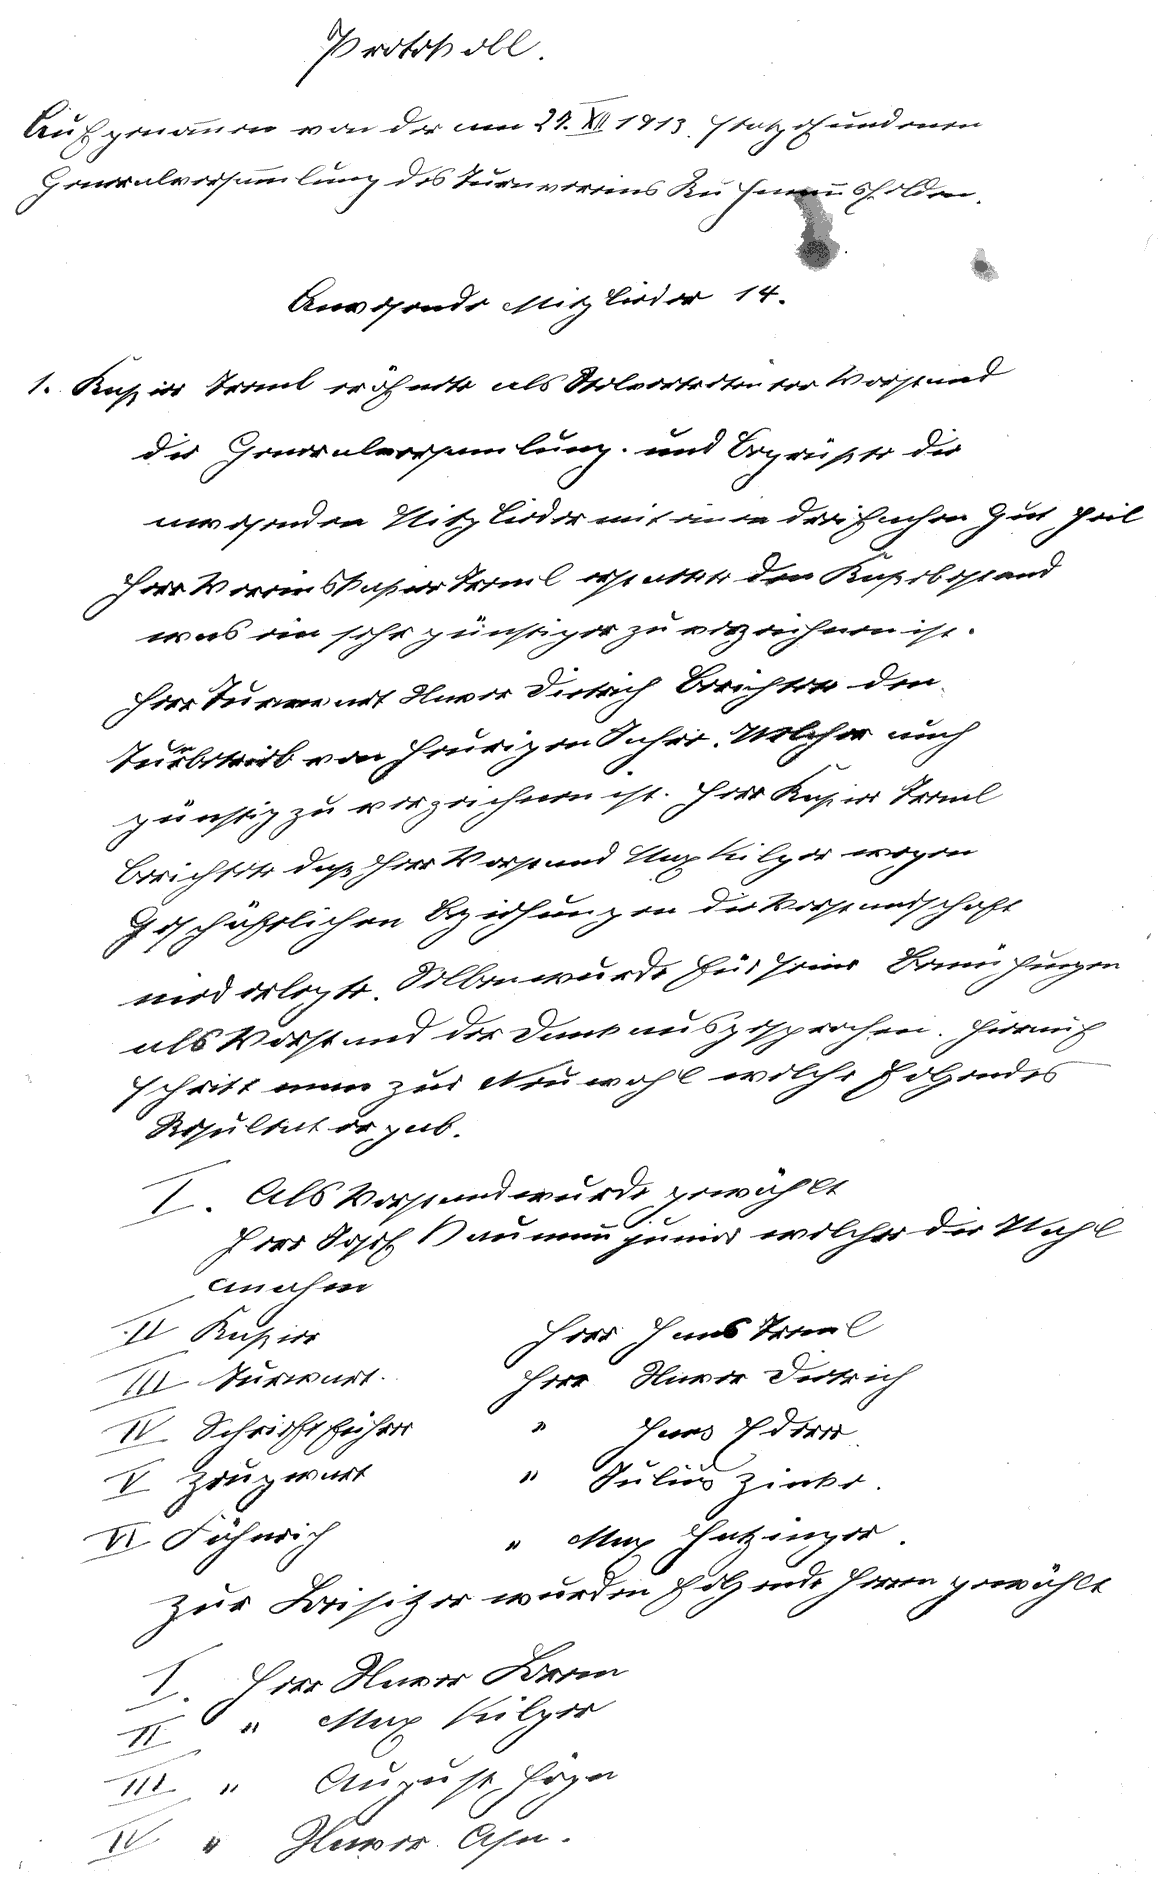 Protokoll.
Aufgenommen von der am 29. XII 1913. stattgefundenen
Generalversammlung des Turnvereins Ruhmannsfelden.
Anwesende Mitglieder 14.
1. Kassier Treml eröfnete als Stelvertretenter Vorstand
die Generalversammlung. und begrüßte die
anwesenden Mitglieder mit einen dreifachen Gut Heil
Herr Vereinskassier Treml erstattete den Kassebestand
was ein sehr günstiger zu verzeichnen ist.
Herr Turnwart Xaver Dietrich berichtete den
Turnbetrieb von heurigen Jahre. Welcher auch
günstig zu verzeichnen ist. Herr Kassier Treml
berichtete daß Herr Vorstand Max Kilger wegen
Geschäftlichen Beziehungen die Vorstandschaft
niederlegte. Selben wurde für seine Bemühungen
als Vorstand der Dank ausgesprochen. Hierauf
schritt man zur Neuwahl welche folgendes
Resultat ergab.
I. Als Vorstand wurde gewählt
Herr Josef Baumann junior welcher die Wahl
annahm
II Kassier Herr Hans Treml
III Turwart. Herr Xaver Dietrich
IV Schriftführer " Hans Ederer
V Zeugwart " Julius Zinke.
VI Fähnrich " Max Hatzinger.
Zur Beisitzer wurden folgende Herren gewählt
I. Herr Xaver
II " Max Kilger
III " August Högn
IV " Xaver